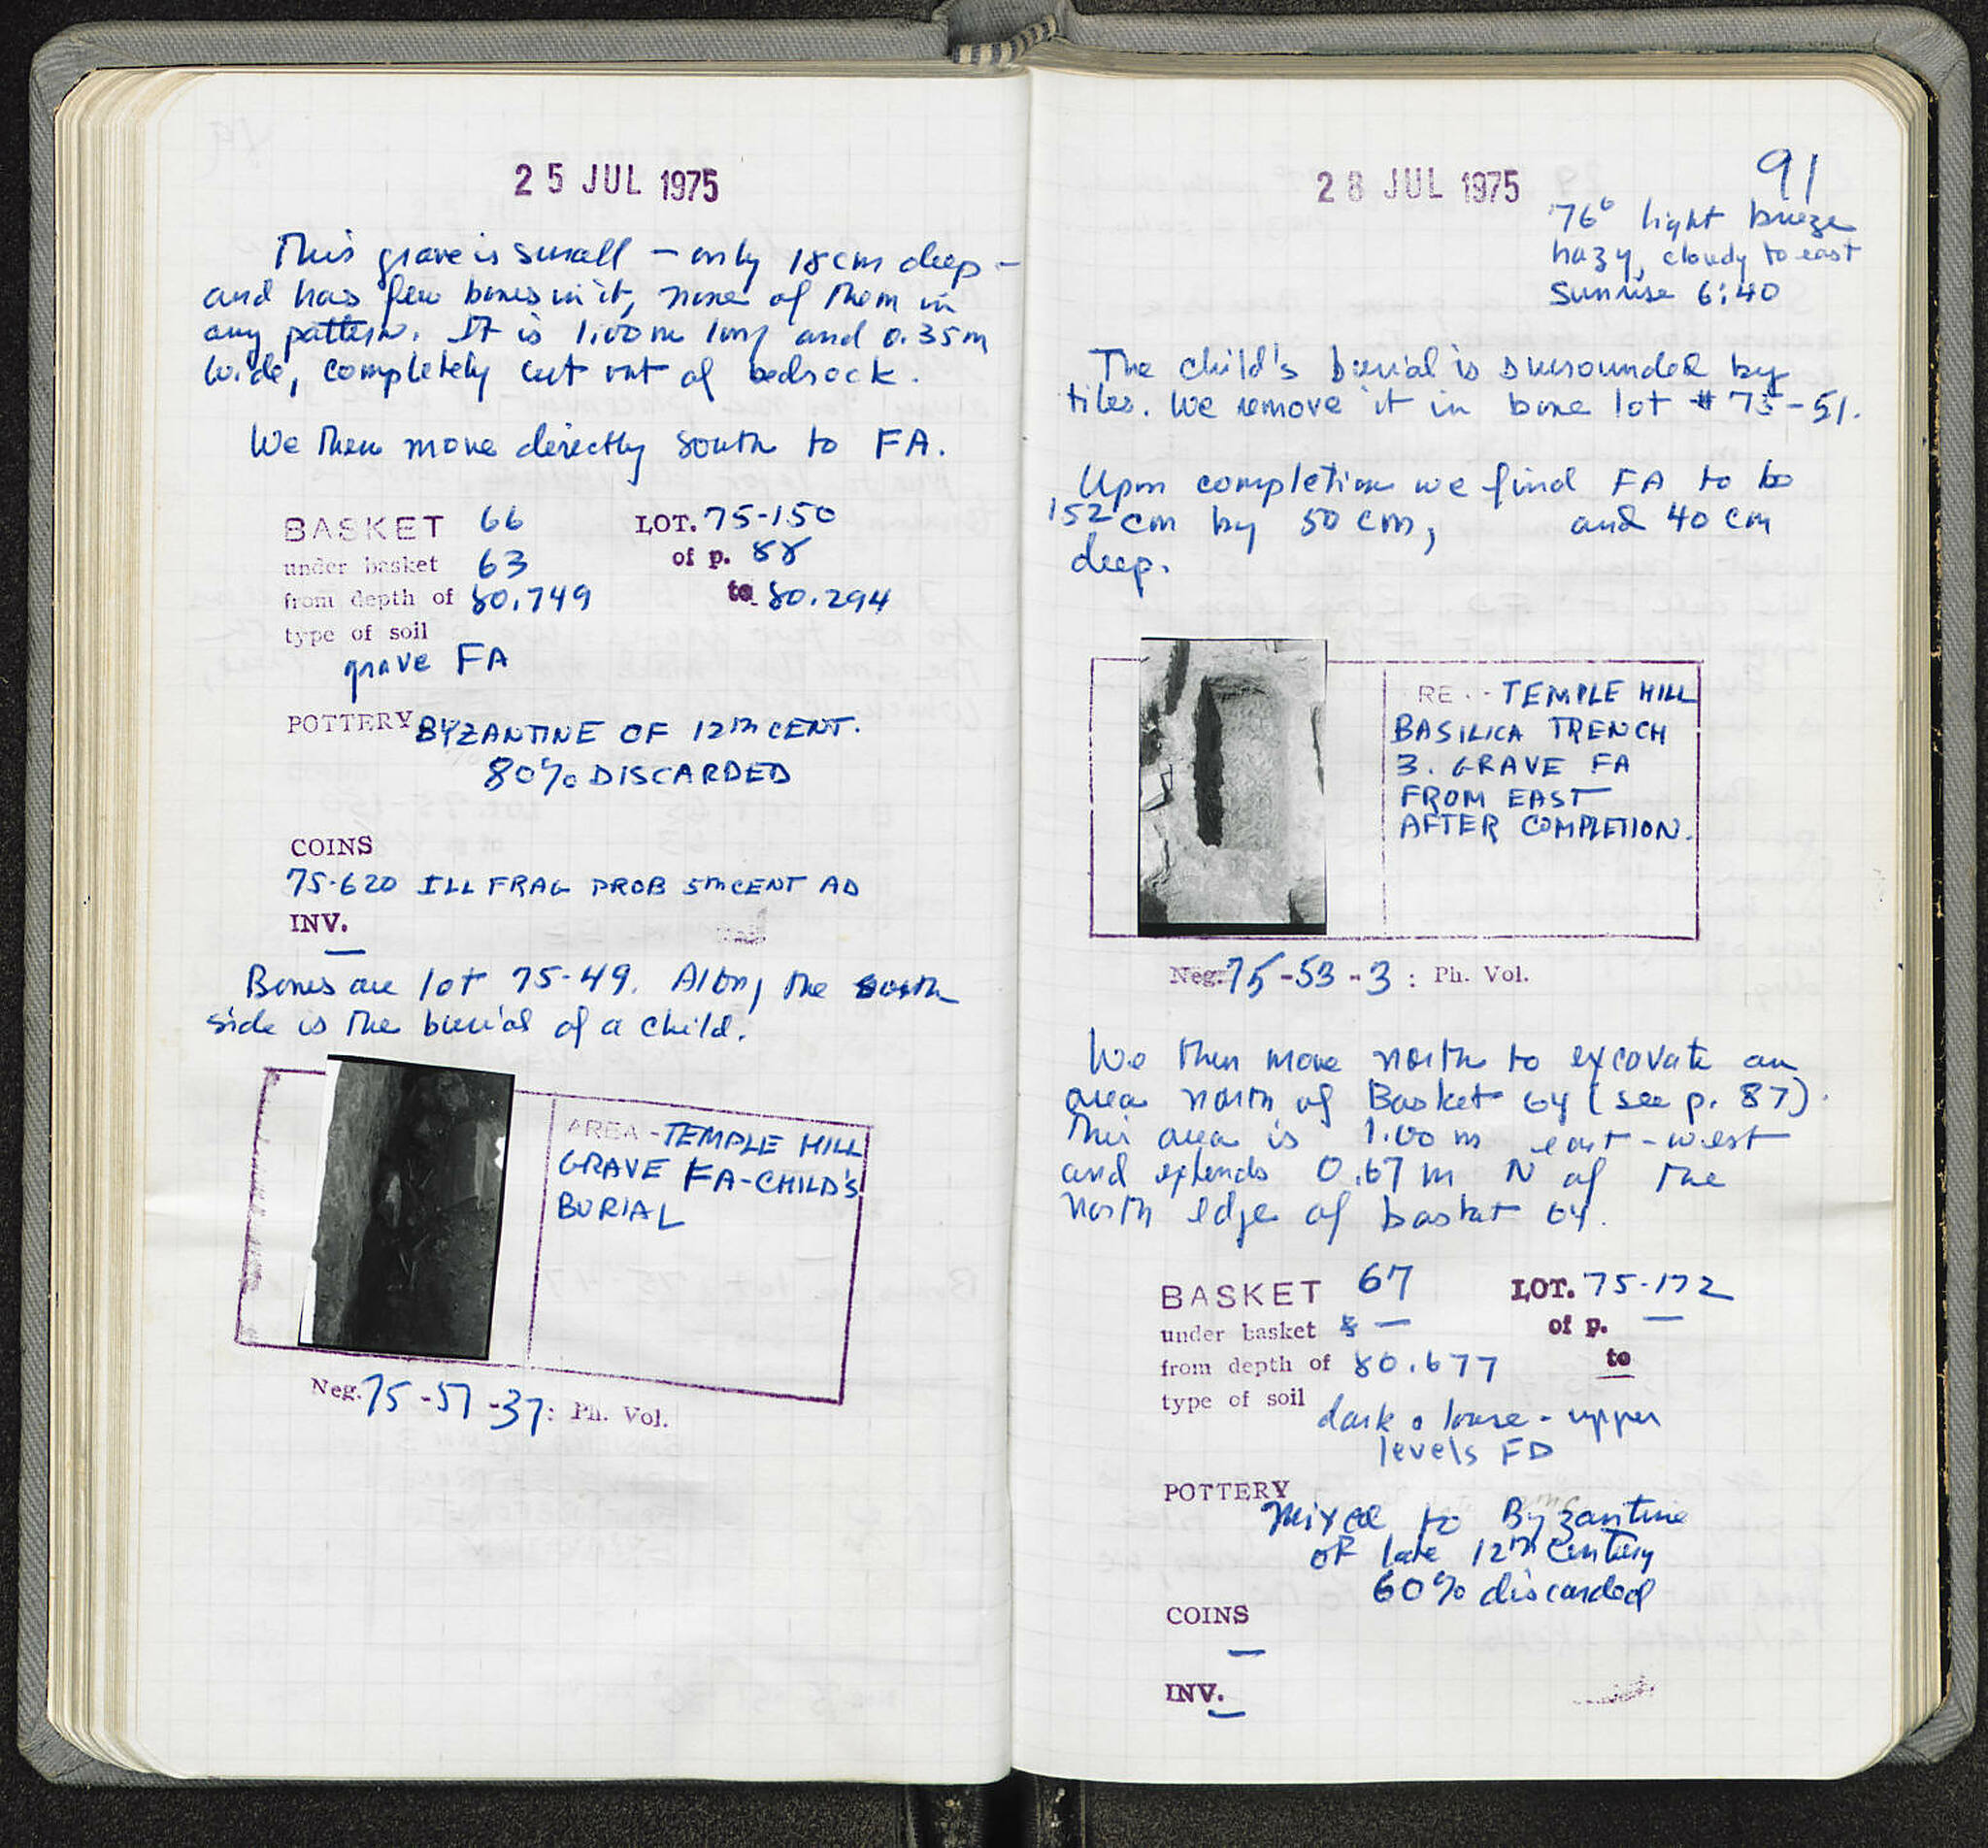 25 JUL 1975
This grave is small – only 18 cm deep –
and has few bones in it, none of them in
any pattern. It is 1.00 m long and 0.35 m
wide, completely cut out of bedrock.
We then move directly south to FA.
BASKET 66 LOT. 75-150
under basket 63 of p. 88
from depth of 80.749 to 80.294
type of soil
grave FA
POTTERY BYZANTINE OF 12TH CENT.
80% DISCARDED
COINS
75-620 ILL FRAG PROB 5TH CENT AD
INV. —
Bones are lot 75-49. Along the south
side is the burial of a child.
AREA - TEMPLE HILL
GRAVE FA-CHILD'S
BURIAL
Neg. 75-57-37: Ph. Vol.
91
28 JUL 1975
76° light breeze
hazy, cloudy to east
Sunrise 6:40
The child's burial is surrounded by
tiles. We remove it in bone lot # 75-51.
Upon completion we find FA to be
152 cm by 50 cm, and 40 cm
deep.
RE - TEMPLE HILL
BASILICA TRENCH
3. GRAVE FA
FROM EAST
AFTER COMPLETION.
Neg. 75-53-3 : Ph. Vol.
We then move north to excavate an
area north of Basket 64 (see p. 87).
This area is 1.00 m east-west
and extends 0.67 m N of the
north edge of basket 64.
BASKET 67 LOT. 75-172
under basket — of p. —
from depth of 80.677 to
type of soil dark & loose - upper
levels FD
POTTERY
Mixed to Byzantine
of late 12th century
60% discarded
COINS
—
INV. —